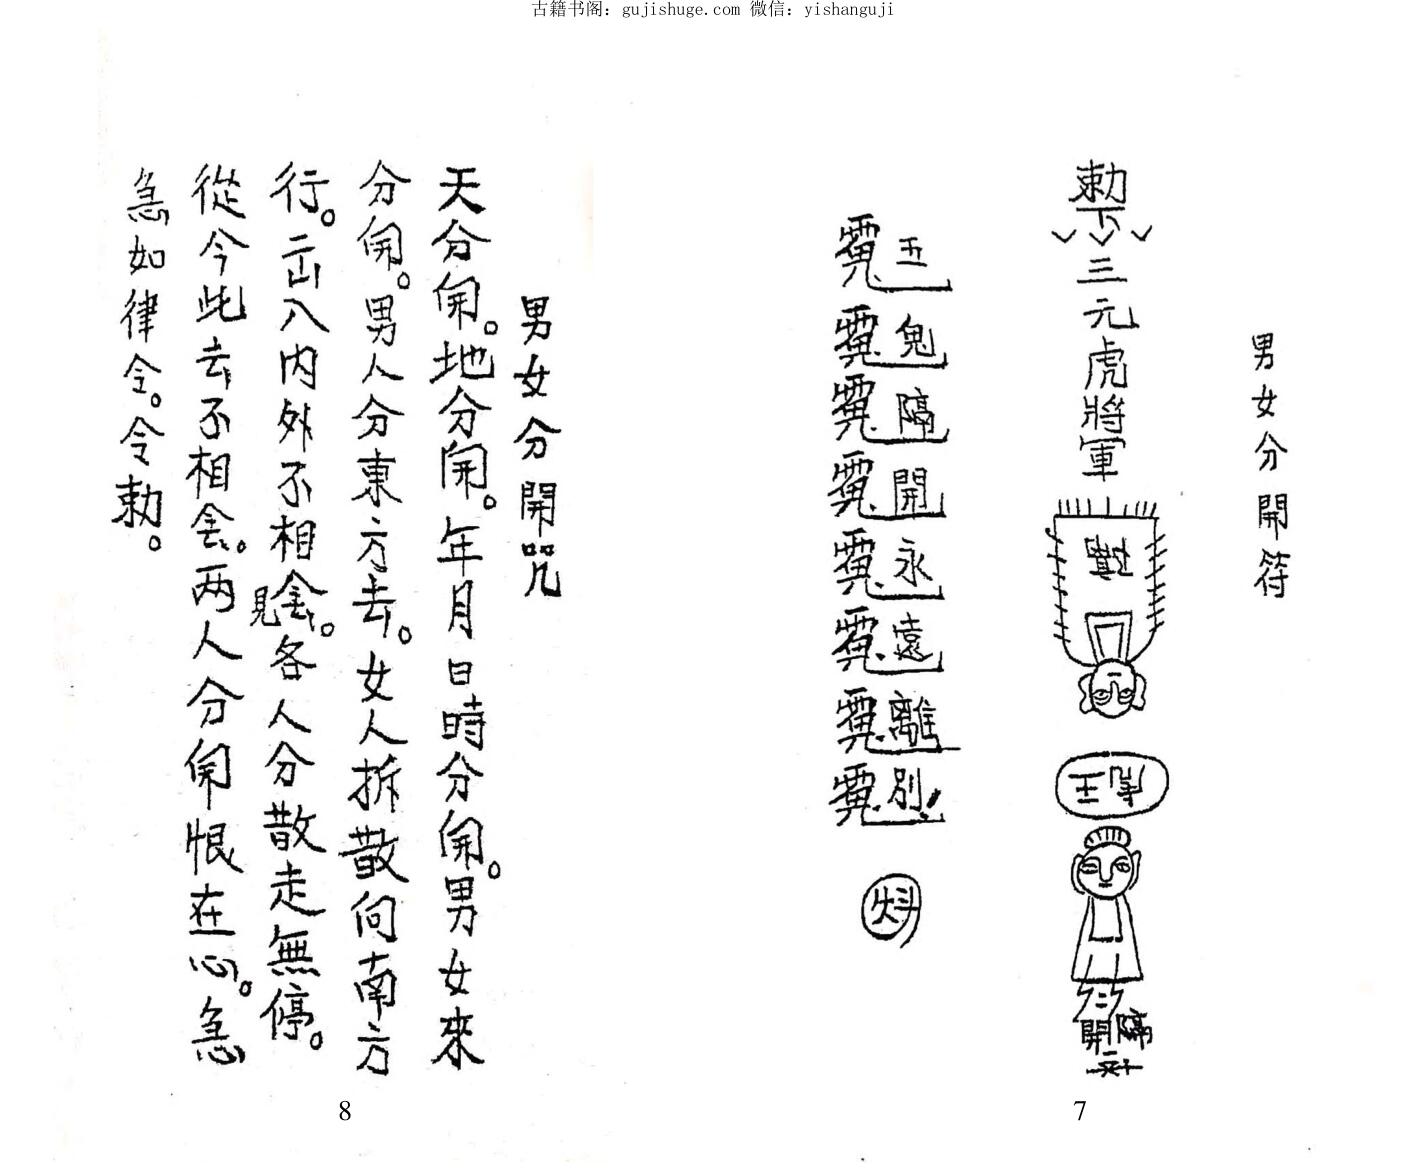 古籍书阁：gujishuge.com 微信：yishanguji
男女分開符
勅下
三元虎將軍
隔開
五鬼隔開永遠離別
7
男女分開咒
天分開。地分開。年月日時分開。男女來
分開。男人分東方去。女人拆散向南方
行。二出入内外不相会見。各人分散走無停。
從今此去不相会。两人分開恨在心。急
急如律令。令勅。
8